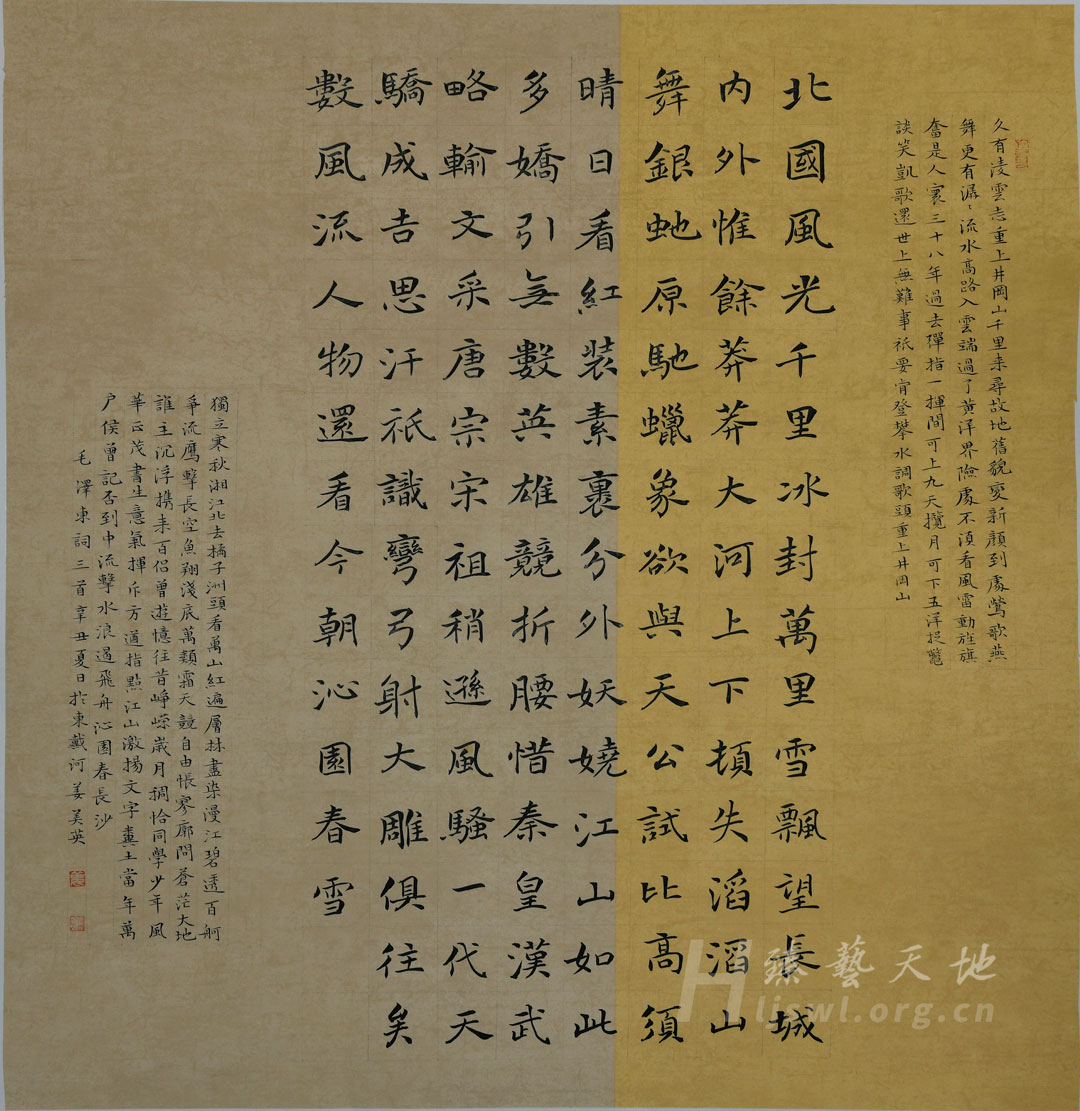 久有淩雲志重上井岡山千里来尋故地舊貌變新顔到處鶯歌燕
舞更有潺〻流水高路入雲端過了黄洋界險處不湏看風雷動旌旗
奮是人寰三十八年過去彈指一揮間可上九天攬月可下五洋捉鱉
談笑凱歌還世上無難事衹要肎登攀水調歌頭重上井岡山
北國風光千里冰封萬里雪飄望長城
内外惟餘莽莽大河上下頓失滔滔山
舞銀虵原馳蠟象欲與天公試比高須
晴日看紅裝素裹分外妖嬈江山如此
多嬌引無數英雄競折腰惜秦皇漢武
略輸文采唐宗宋祖稍遜風騷一代天
驕成吉思汗衹識彎弓射大雕俱往矣
數風流人物還看今朝沁園春雪
獨立寒秋湘江北去橘子洲頭看萬山紅遍層林盡染漫江碧透百舸
爭流鷹擊長空魚翔淺底萬類霜天競自由悵寥廓問蒼茫大地
誰主沉浮攜来百侶曾遊憶往昔崢嶸歲月稠恰同學少年風
華正茂書生意氣揮斥方遒指點江山激揚文字糞土當年萬
户侯曾記否到中流擊水浪遏飛舟沁園春長沙
毛澤東詞三首辛丑夏日於東戴河姜美英
臻藝天地
hjswl.org.cn